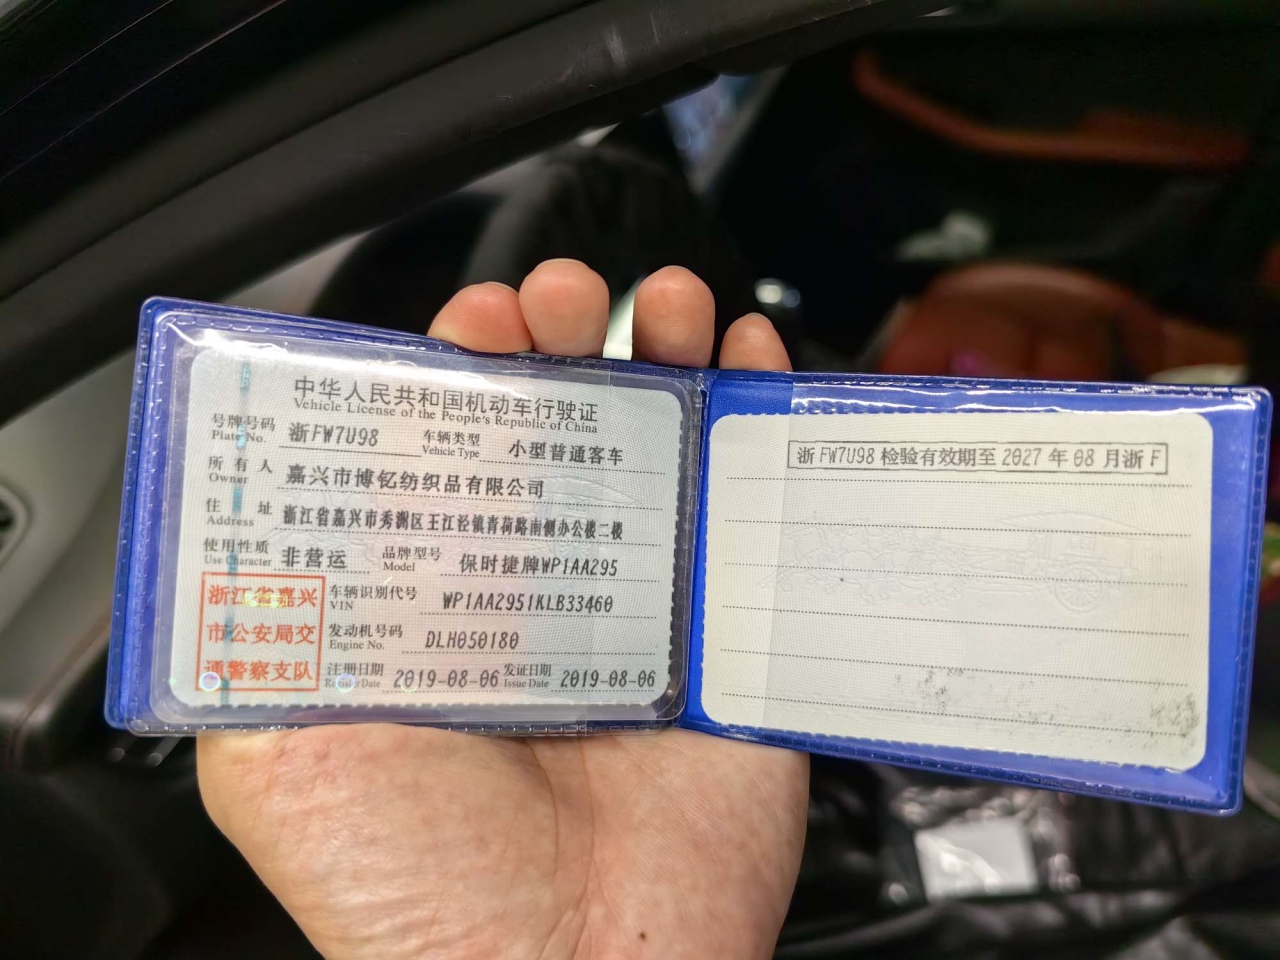 中华人民共和国机动车行驶证
Vehicle License of the People's Republic of China
号牌号码 浙FW7U98 车辆类型 小型普通客车
Plate No. Vehicle Type
所有人 嘉兴市博钇纺织品有限公司
Owner
住址 浙江省嘉兴市秀洲区王江泾镇青荷路南侧办公楼二楼
Address
使用性质 非营运 品牌型号 保时捷牌WP1AA295
Use Character Model
车辆识别代号 WP1AA2951KLB33460
VIN
发动机号码 DLH050180
Engine No.
注册日期 2019-08-06 发证日期 2019-08-06
Register Date Issue Date
浙江省嘉兴
市公安局交
通警察支队
浙FW7U98检验有效期至2027年08月浙F